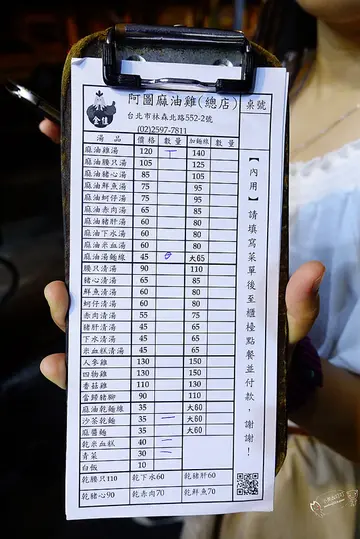 阿圖麻油雞(總店) 桌號
台北市林森北路552-2號
(02)2597-7811
金佳
湯品 價格 數量 加麵線 數量
麻油雞湯 120 一 140
麻油腰只湯 105 125
麻油豬心湯 85 105
麻油鮮魚湯 75 95
麻油蚵仔湯 75 95
麻油赤肉湯 65 85
麻油豬肝湯 60 80
麻油下水湯 60 80
麻油米血湯 60 80
麻油湯麵線 45 大65
腰只清湯 90 110
豬心清湯 65 85
鮮魚清湯 60 80
蚵仔清湯 60 80
赤肉清湯 55 75
豬肝清湯 45 65
下水清湯 45 65
米血糕清湯 45 65
人參雞 130 150
四物雞 130 150
香菇雞 110 130
當歸豬腳 90 110
麻油乾麵線 35 大60
沙茶乾麵 35 一 大60
麻醬麵 35 大60
乾米血糕 40 一
青菜 30 一
白飯 10
乾腰只110 乾下水60 乾豬肝60
乾豬心90 乾赤肉70 乾鮮魚70
【內用】請填寫菜單後至櫃檯點餐並付款,謝謝!